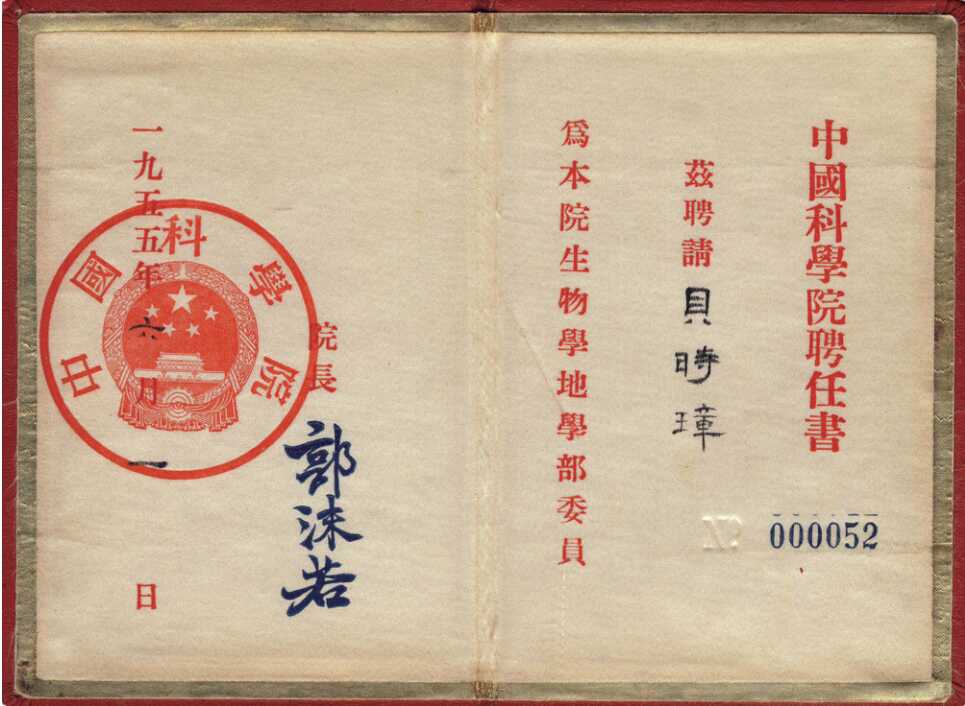 中國科學院聘任書
000052
茲聘請貝時璋
爲本院生物學地學部委員
院長
郭沫若
一九五五年六月一日
中國科學院